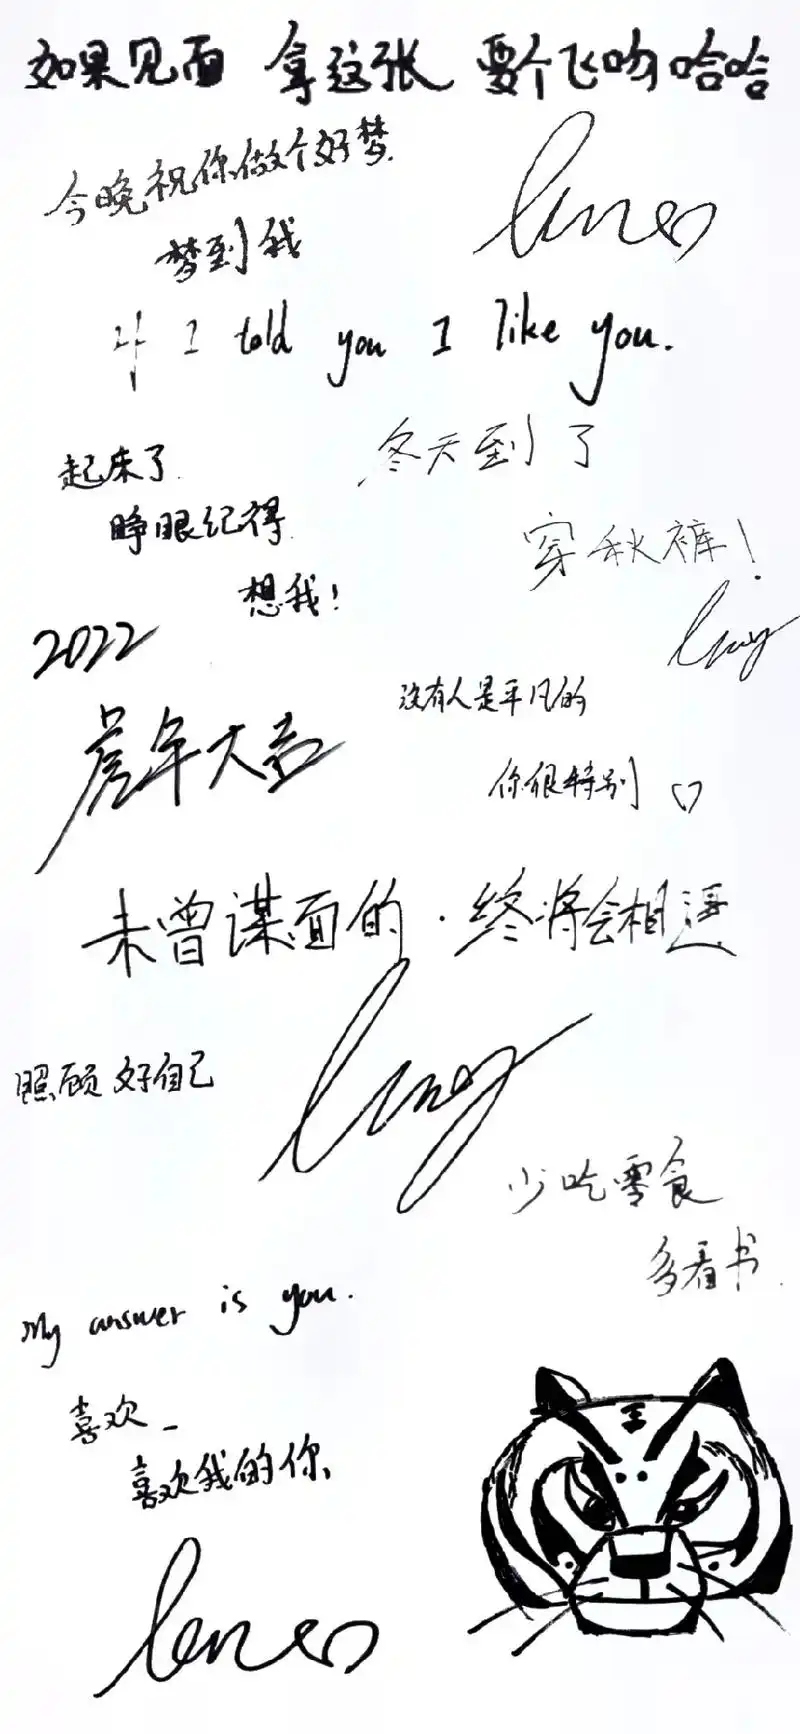 如果见面 拿这张 要个飞吻哈哈
今晚祝你做个好梦
梦到我
if I told you I like you.
起床了
睁眼记得
想我!
冬天到了
穿秋裤!
2022
虎年大吉
没有人是平凡的
你很特别♡
未曾谋面的.终将会相遇
照顾好自己
少吃零食
多看书
My answer is you.
喜欢_
喜欢我的你
王